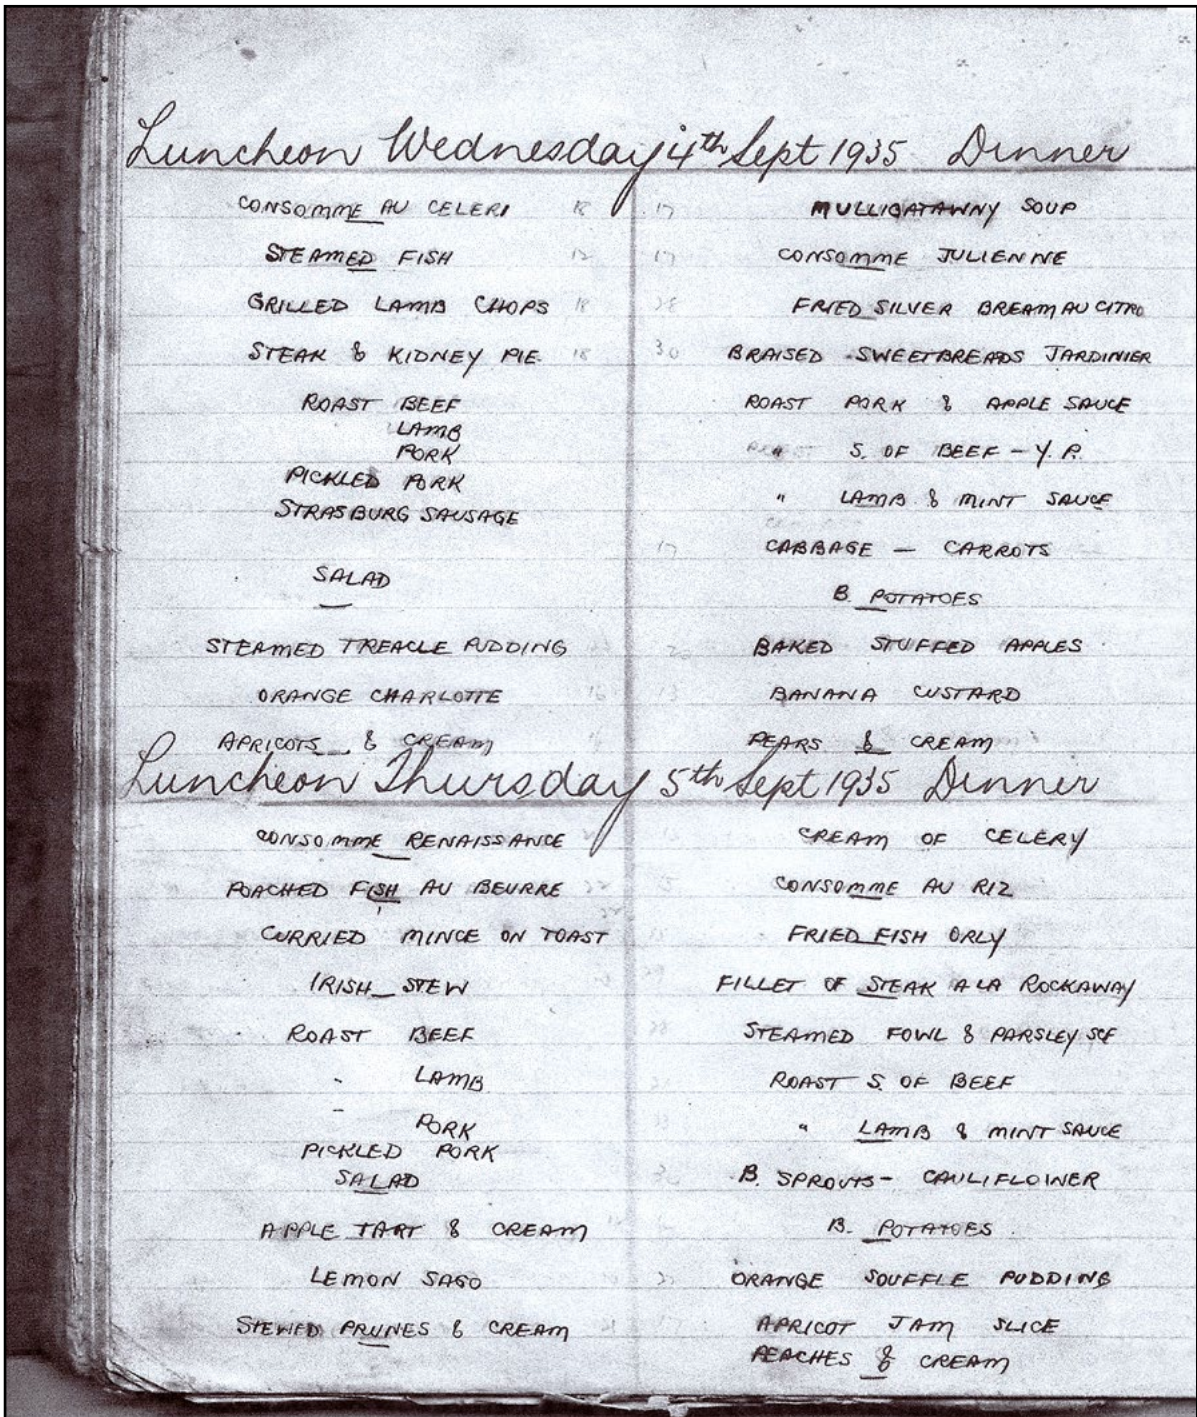 Luncheon Wednesday 4th Sept 1935 Dinner
CONSOMME AU CELERI 18
STEAMED FISH 12
GRILLED LAMB CHOPS 18
STEAK & KIDNEY PIE 18
ROAST BEEF
LAMB
PORK
PICKLED PORK
STRASBURG SAUSAGE
SALAD
STEAMED TREACLE PUDDING
ORANGE CHARLOTTE 16
APRICOTS & CREAM
17 MULLIGATAWNY SOUP
17 CONSOMME JULIENNE
28 FRIED SILVER BREAM AU CITRO
30 BRAISED SWEETBREADS JARDINIER
ROAST PORK & APPLE SAUCE
" S. OF BEEF - Y. P.
" LAMB & MINT SAUCE
17 CABBAGE - CARROTS
B. POTATOES
BAKED STUFFED APPLES
13 BANANA CUSTARD
PEARS & CREAM
Luncheon Thursday 5th Sept 1935 Dinner
CONSOMME RENAISSANCE
POACHED FISH AU BEURRE
CURRIED MINCE ON TOAST
IRISH STEW
ROAST BEEF
LAMB
PORK
PICKLED PORK
SALAD
APPLE TART & CREAM
LEMON SAGO
STEWED PRUNES & CREAM
CREAM OF CELERY
CONSOMME AU RIZ
FRIED FISH ORLY
FILLET OF STEAK A LA ROCKAWAY
STEAMED FOWL & PARSLEY SCE
ROAST S. OF BEEF
" LAMB & MINT SAUCE
B. SPROUTS - CAULIFLOWER
B. POTATOES
ORANGE SOUFFLE PUDDING
APRICOT JAM SLICE
PEACHES & CREAM